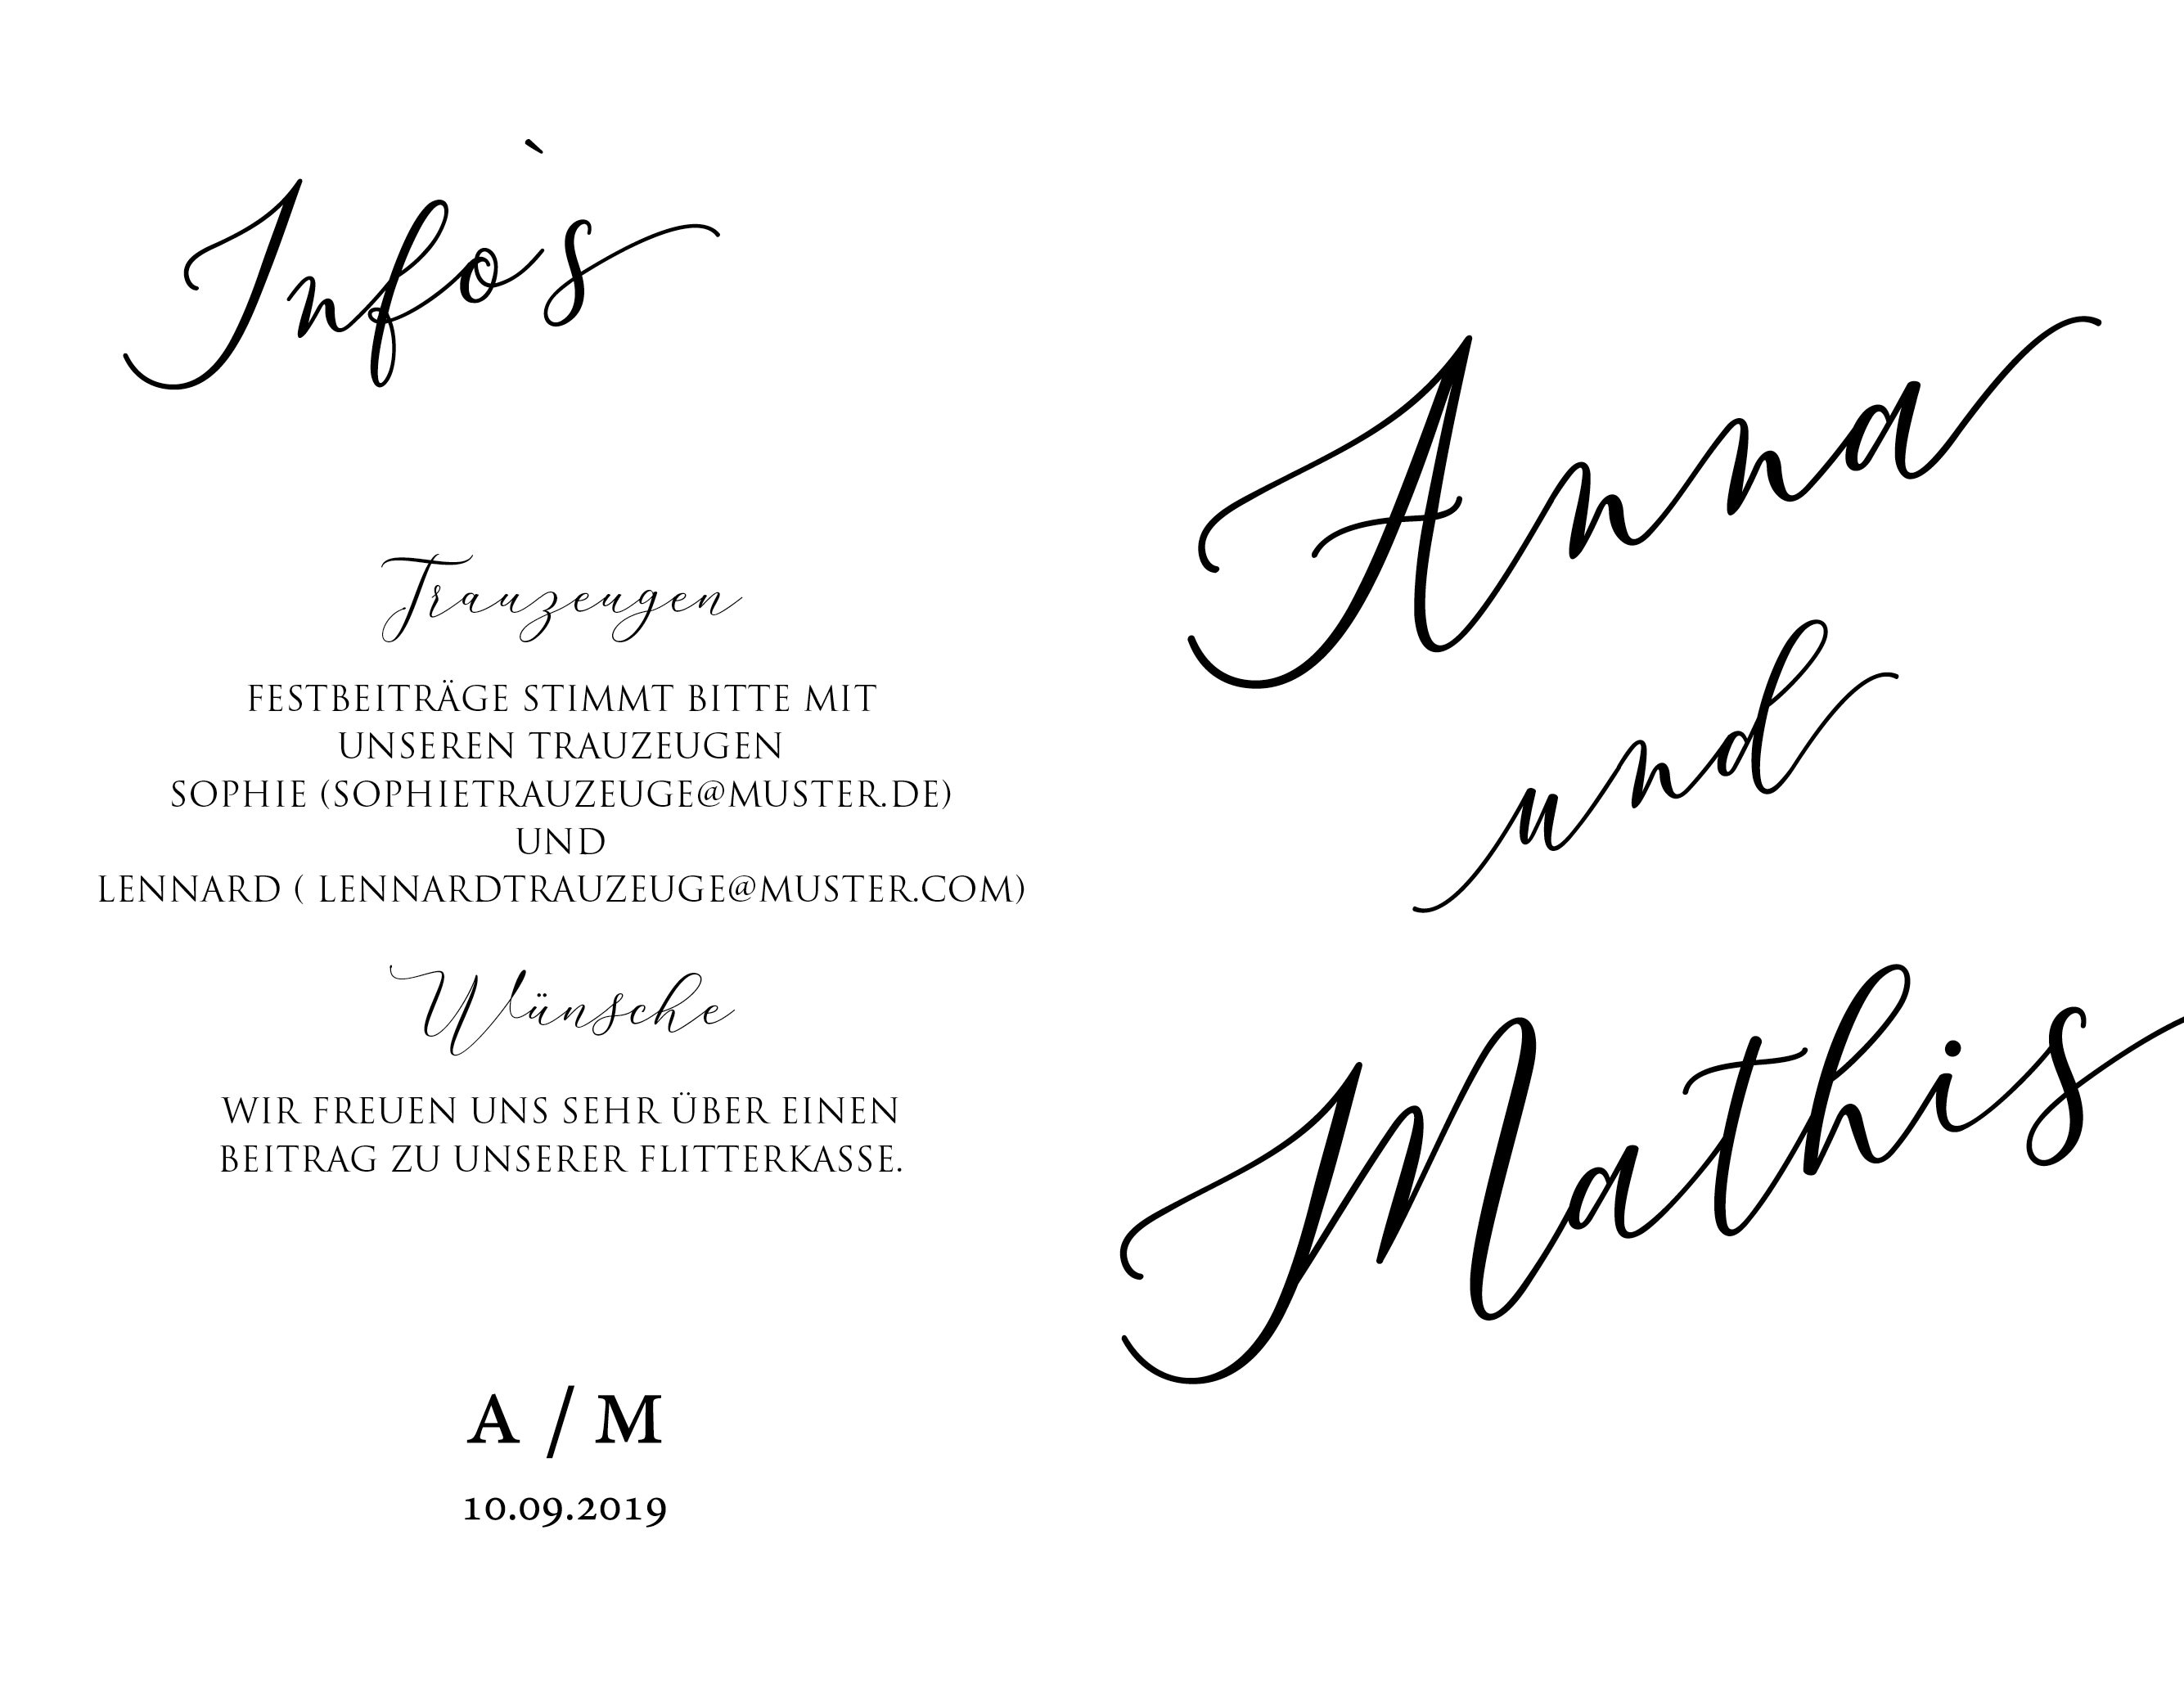 Info`s
Trauzeugen
FESTBEITRÄGE STIMMT BITTE MIT
UNSEREN TRAUZEUGEN
SOPHIE (SOPHIETRAUZEUGE@MUSTER.DE)
UND
LENNARD ( LENNARDTRAUZEUGE@MUSTER.COM)
Wünsche
WIR FREUEN UNS SEHR ÜBER EINEN
BEITRAG ZU UNSERER FLITTERKASSE.
A / M
10.09.2019
Anna
und
Mathis